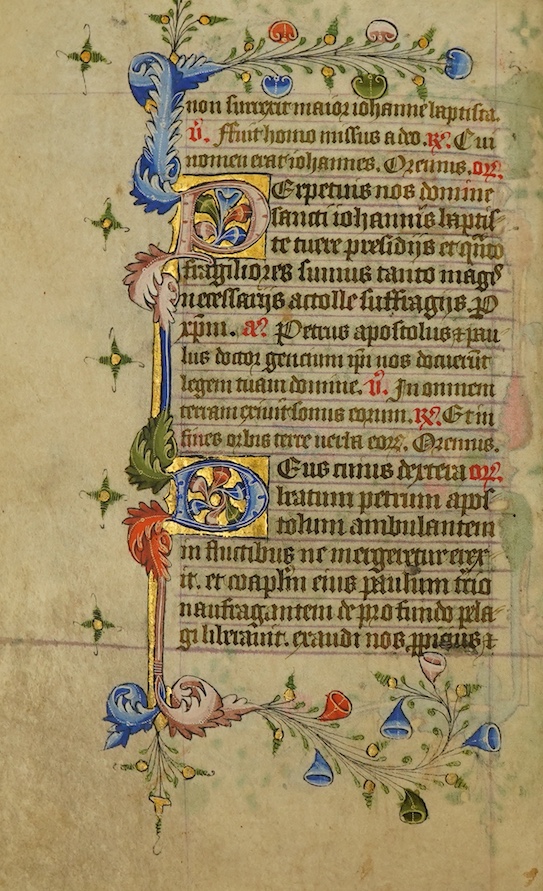 non surrexit maior iohanne baptista.
v̓. Ffuit homo missus a deo. rx̓. Cui
nomen erat iohannes. Oremus. orͦ.
PErpetuis nos domine
sancti iohannis baptis
te tuere presidijs et qͣnto
fragiliores sumus tanto magꝰ
necessarijs attolle suffragijs. P
xp̄m. aͣ. Petrus apostolus ⁊ pau
lus doctor gencium ipi nos docuerūt
legem tuam domine. v̓. In omnem
terram exiuit sonus eorum. rx̓. Et in
fines orbis terre verba eorꝝ. Oremus.
DEus cuius dextera orͦ.
beatum petrum apos
tolum ambulantem
in fluctibus ne mergeretur erex
it. et coapl̄m eius paulum tcio
naufragantem de profundo pela
gi liberauit. exaudi nos ꝓpicius ⁊